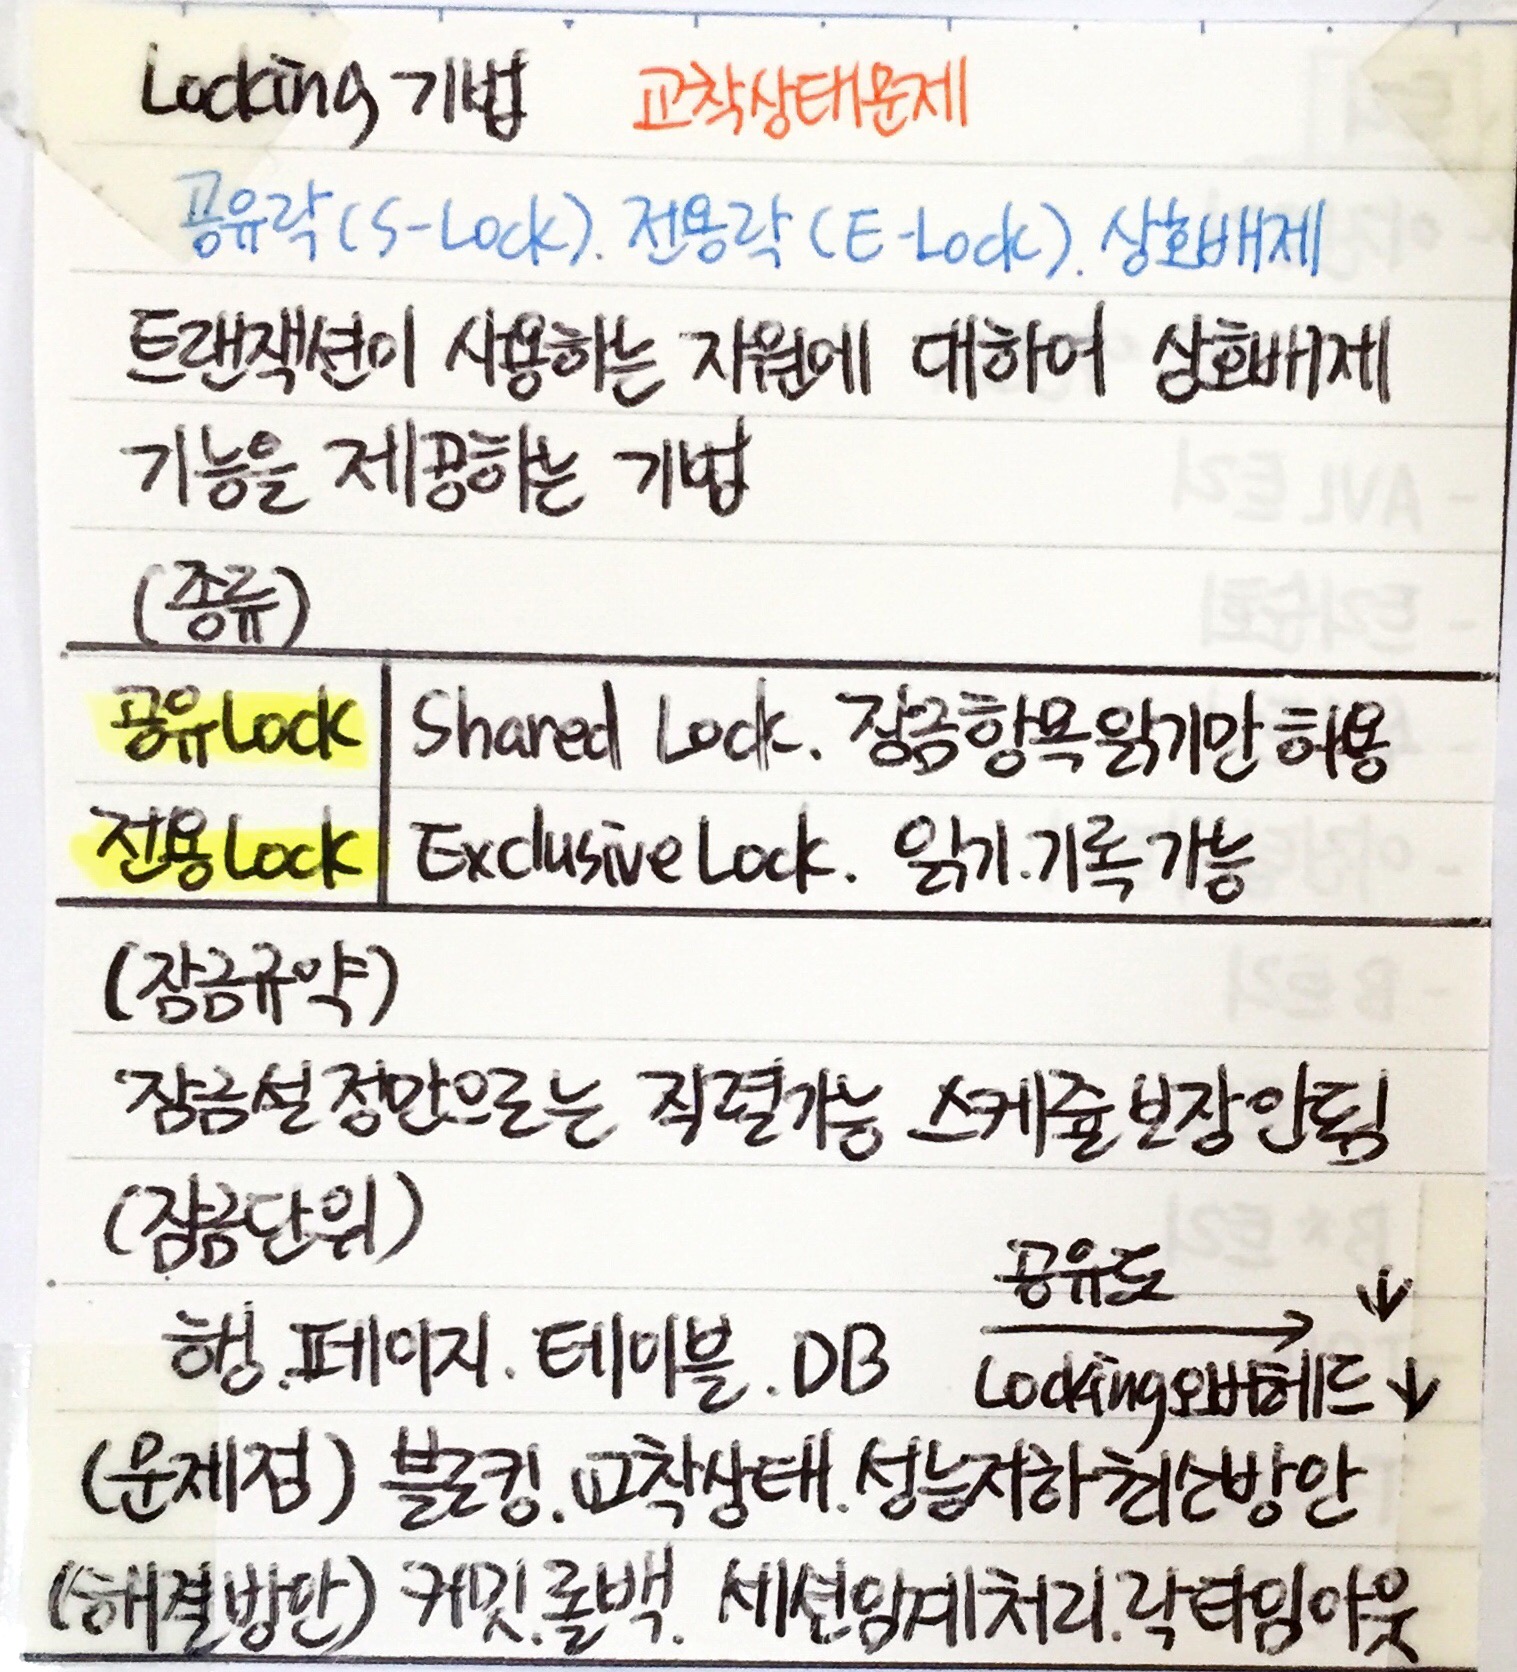 Locking 기법 교착상태문제
공유락(S-Lock). 전용락(E-Lock). 상호배제
트랜잭션이 사용하는 자원에 대하여 상호배제
기능을 제공하는 기법
(종류)
공유Lock Shared Lock. 잠금항목 읽기만 허용
전용Lock Exclusive Lock. 읽기.기록 가능
(잠금규약)
잠금설정만으로는 직렬가능 스케쥴 보장 안됨
(잠금단위)
공유도 ↓
행.페이지.테이블.DB →
Locking오버헤드 ↓
(문제점) 블로킹.교착상태.성능저하 최소방안
(해결방안) 커밋.롤백. 세션임계처리.락타임아웃